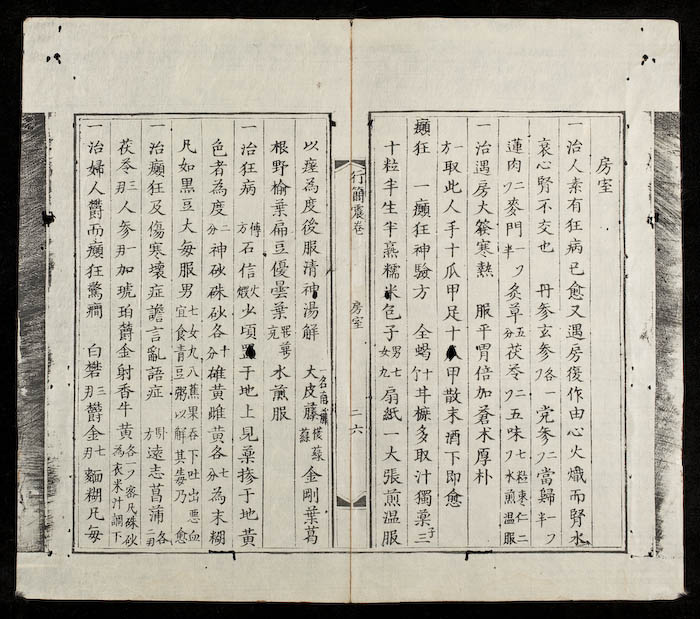 房室
一治人素有狂病已愈又遇房復作由心火熾而腎水
衰心腎不交也　丹參玄參各一フ党參フ二當歸半フ
蓮肉フ二麥門一フ半灸草五分茯苓フ二五味七粒棗仁二フ水煎温服
一治遇房大發寒熱　服平胃倍加蒼术厚朴
一方取此人手十瓜甲足十甲散末酒下即愈
癲狂　一癲狂神驗方　全蝎廿个多取汁獨菓子三
十粒半生半熹糯米包子男七女九扇紙一大張煎温服
行簡震卷　房室　二六
以痓為度後服清神湯解　大皮藤一名藤金剛葉葛
根野榆葉扁豆優曇葉水煎服
一治狂病傳方石信火煅少頃置于地上見菓掺于地黄
色者為度二分神砂硃砂各十分雄黄雌黄各七分為末糊
凡如黒豆大每服男七女九八蕉果吞下吐出悪血宜食青豆粥以解其毒乃愈
一治癲狂及傷寒壞症譫言亂語症　卧方遠志菖蒲各二刃
茯苓三刃人參一刃加琥珀欝金射香牛黄各一フ蜜凡硃砂為衣米汁調下
一治婦人欝而癲狂驚癎　白礬三刃欝金七刃麵糊凡每